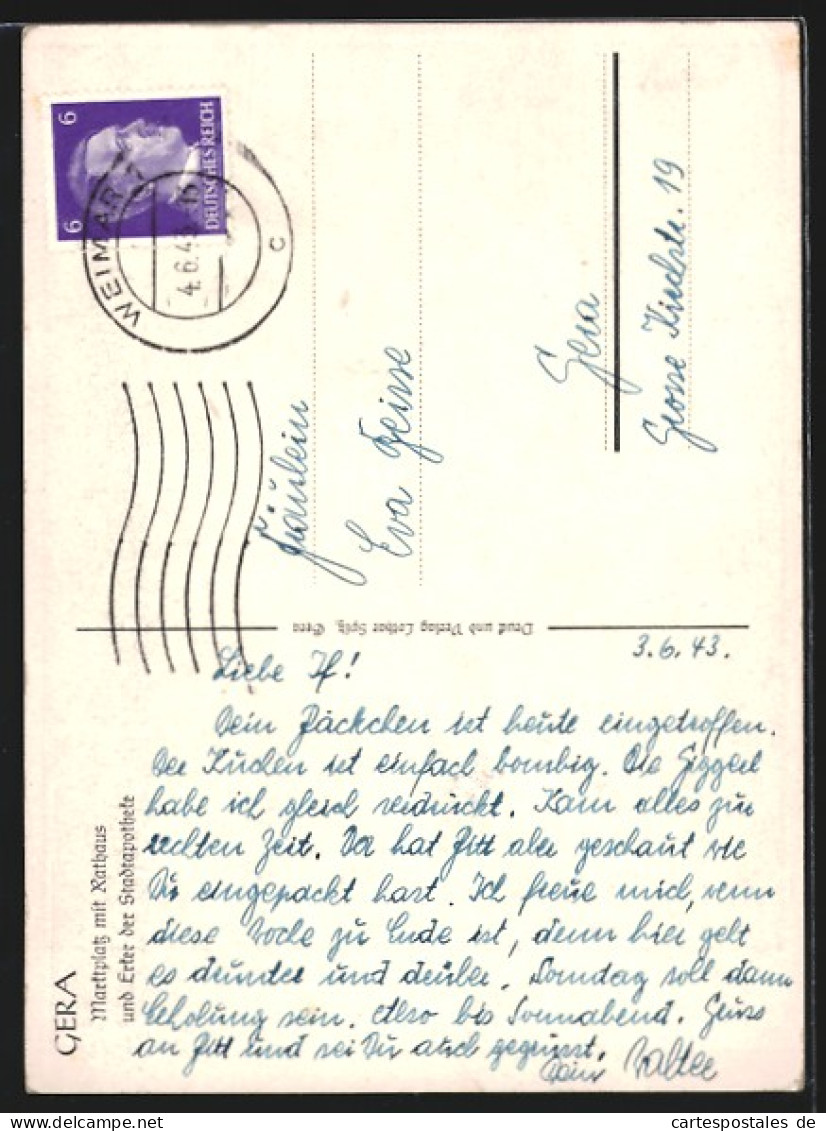 6 6
DEUTSCHES REICH
WEIMAR
4.6.43
c
Fräulein
Eva Zeisse
Gera
Grosse Kirchstr. 19
Druck und Verlag Lothar Spitz, Gera
GERA
Marktplatz mit Rathaus
und Erker der Stadtapotheke
3.6.43.
Liebe
Dein Päckchen ist heute eingetroffen.
Der Kuchen ist einfach bombig. Die
habe ich gleich verdrückt. Kam alles zur
rechten Zeit. Da hat aber geschaut wie
Du eingepackt hast. Ich freue mich, wenn
diese Woche zu Ende ist, denn hier geht
es drunter und drüber. Sonntag soll dann
Erholung sein. Also bis Sonnabend. Gruss
an und sei Du auch gegrüsst.
Dein Walter
cartespostales de